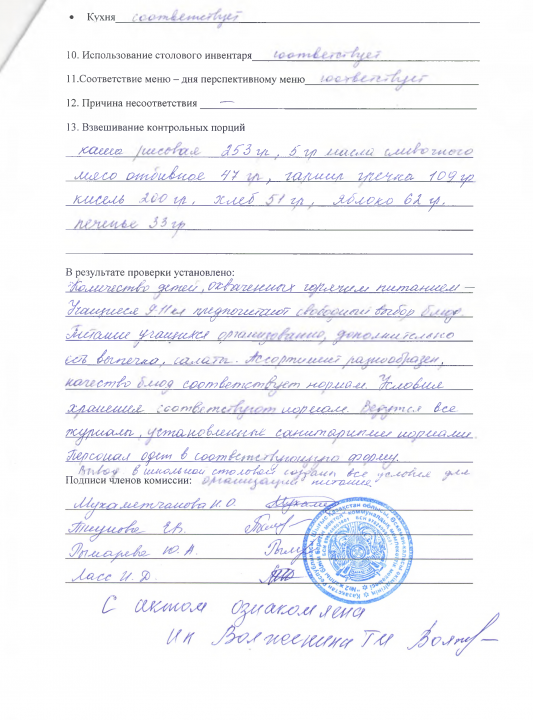 • Кухня соответствует
10. Использование столового инвентаря соответствует
11.Соответствие меню – дня перспективному меню соответствует
12. Причина несоответствия —
13. Взвешивание контрольных порций
каша рисовая 253 гр, 5 гр масла сливочного
мясо отбивное 47 гр, гарнир гречка 109 гр
кисель 200 гр, хлеб 51 гр, яблоко 62 гр.
печенье 33 гр
В результате проверки установлено:
Количество детей, охваченных горячим питанием —
Учащиеся 9-11 кл предпочитают свободный выбор блюд.
Питание учащихся организованно, дополнительно
есть выпечка, салаты. Ассортимент разнообразен,
качество блюд соответствует нормам. Условия
хранения соответствуют нормам. Ведутся все
журналы, установленные санитарными нормами.
Персонал одет в соответствующую форму.
Вывод в школьной столовой созданы все условия для
Подписи членов комиссии: организации питания.
Мухаметчанова Н.О.
Тицнова Е.В.
Ю.А.
Ласс И.Д.
С актом ознакомлена
ИП ТМ